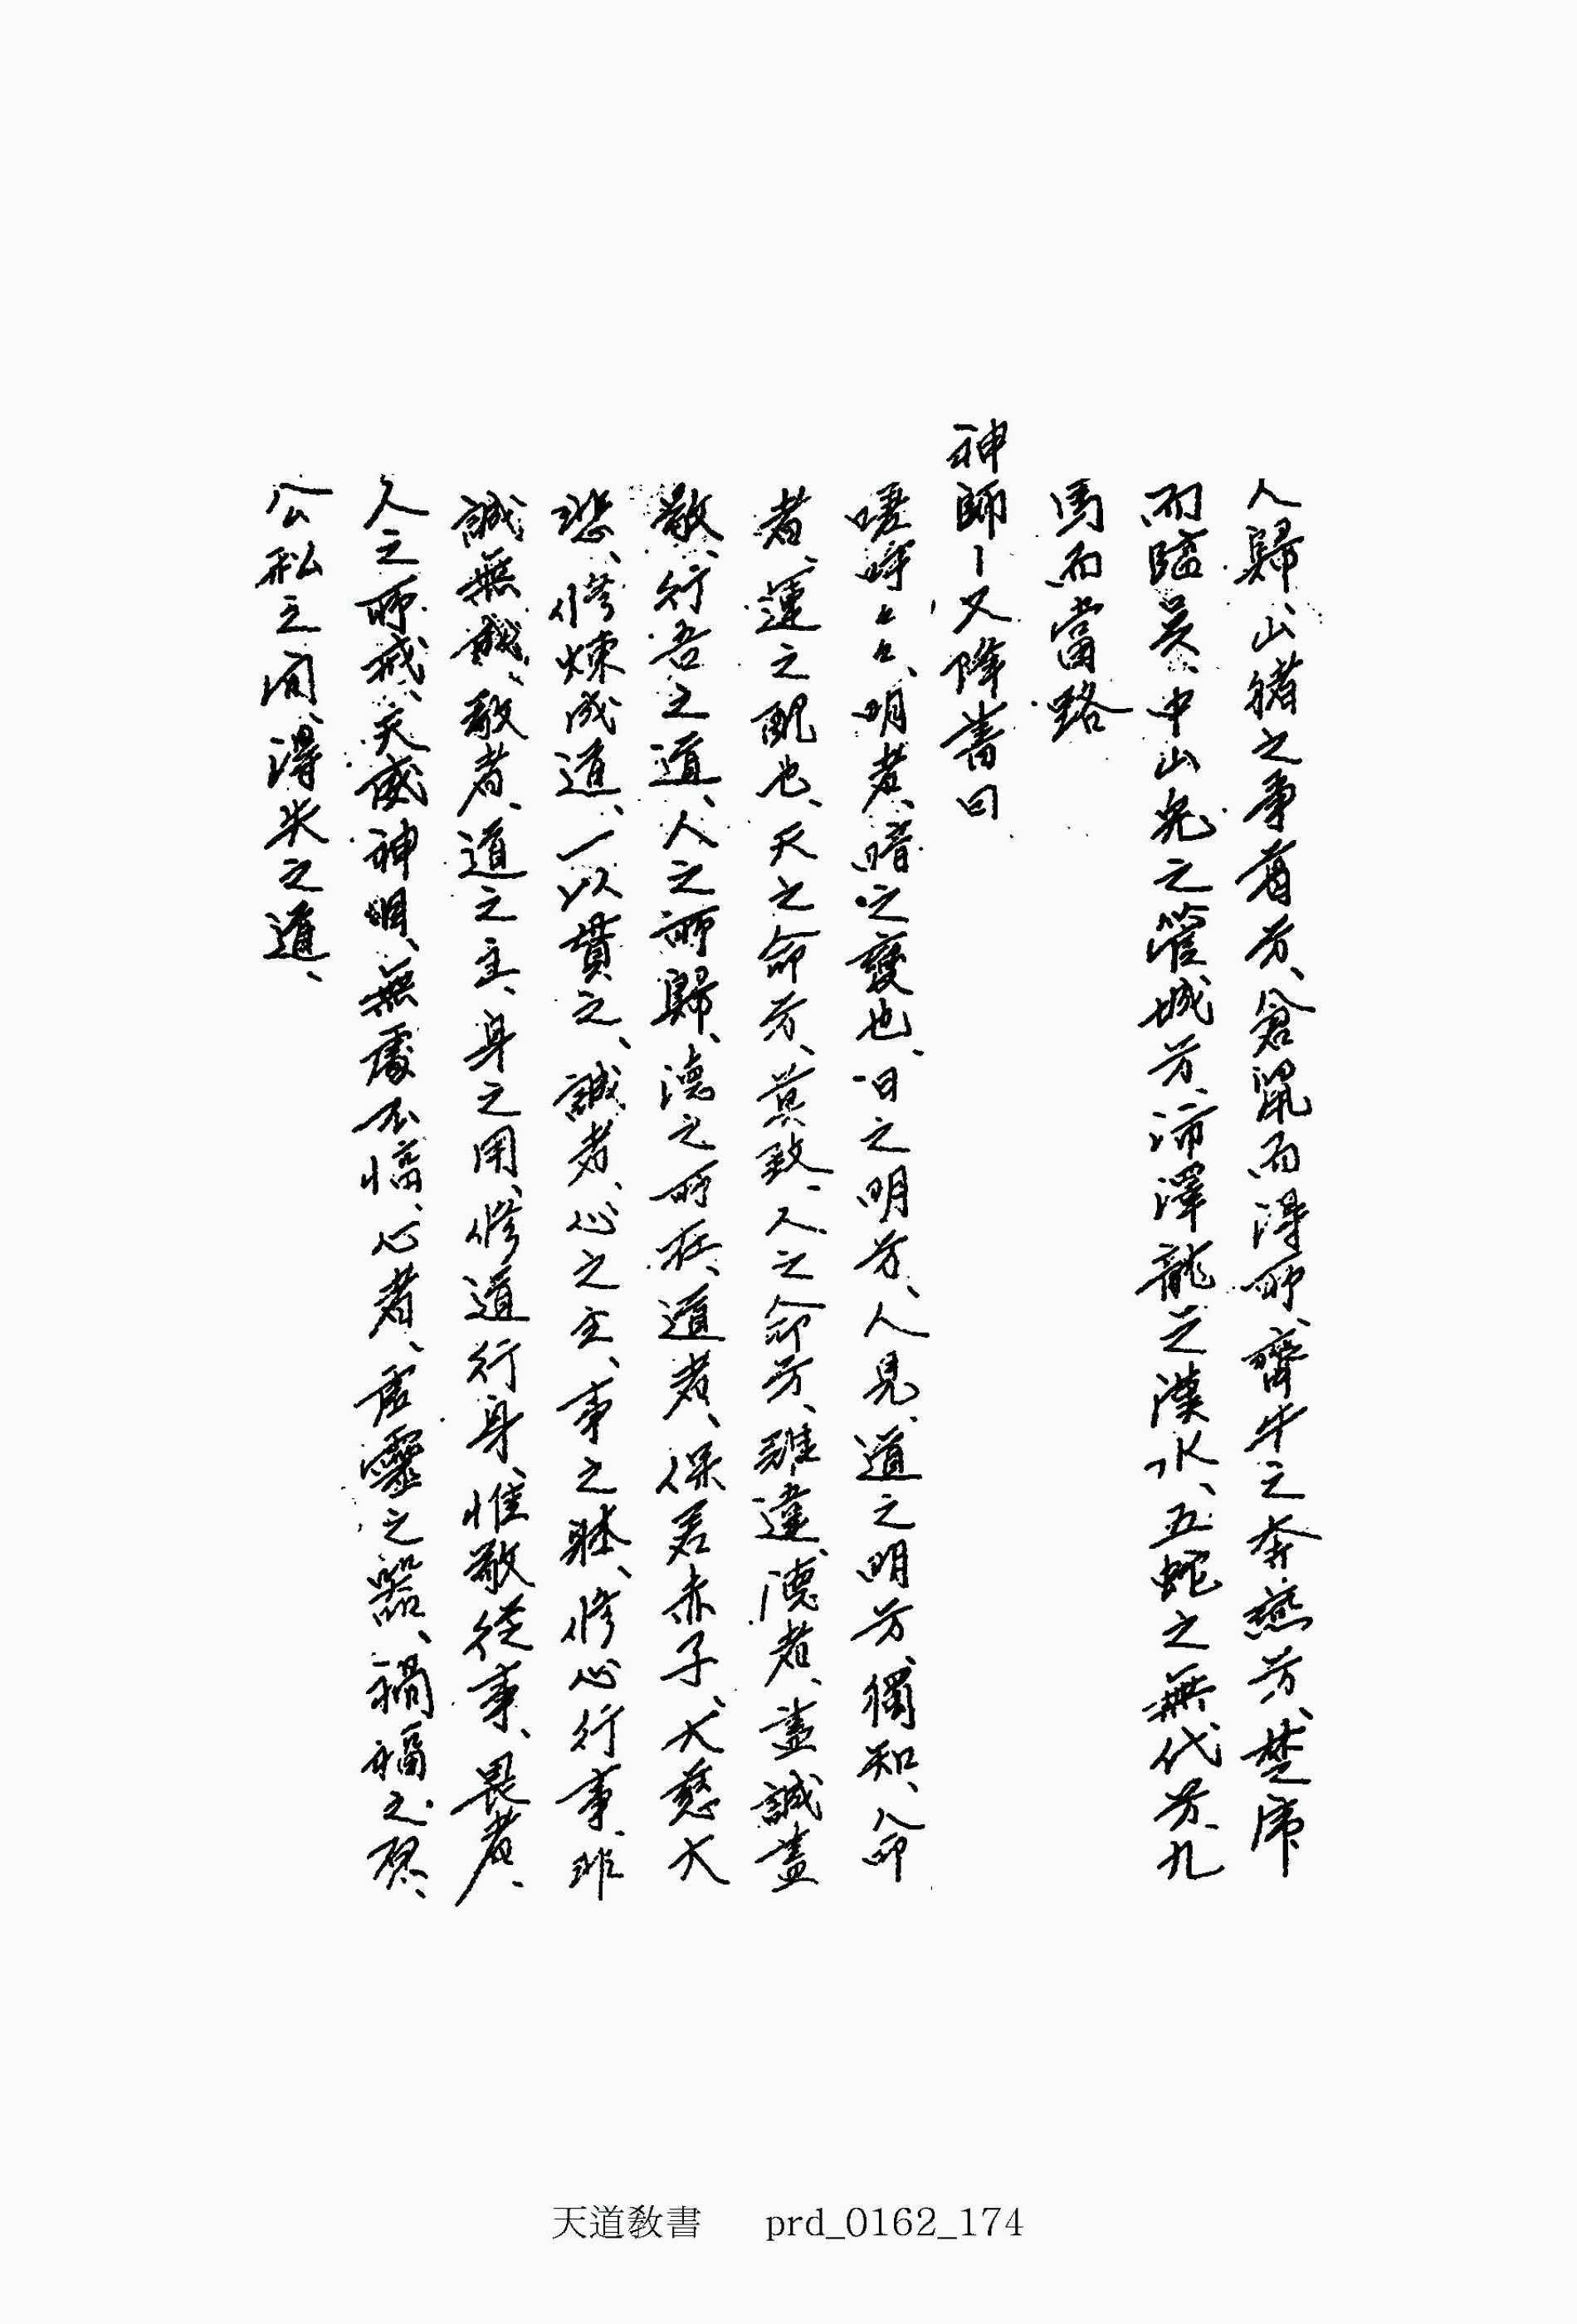 人歸、山猪之爭者兮、倉鼠而得所、齊牛之奔燕兮、楚虎
而臨吳、中山兔之管城兮、沛澤龍之漢水、五蛇之無代兮、九
馬而當路
神師ㅣ又降書曰
嗟呼々々、明者、暗之變也、日之明兮、人見、道之明兮、獨知、命
者、運之配也、天之命兮、莫致、人之命兮、難違、德者、盡誠盡
敬、行吾之道、人之所歸、德之所在、道者、保若赤子、大慈大
悲、修煉成道、一以貫之、誠者、心之主、事之体、修心行事、非
誠無成、敬者、道之主、身之用、修道行身、惟敬從事、畏者、
人之所戒、天威神明、無處不臨、心者、虛靈之器、禍福之源、
公私之間、得失之道、
天道敎書 prd_0162_174